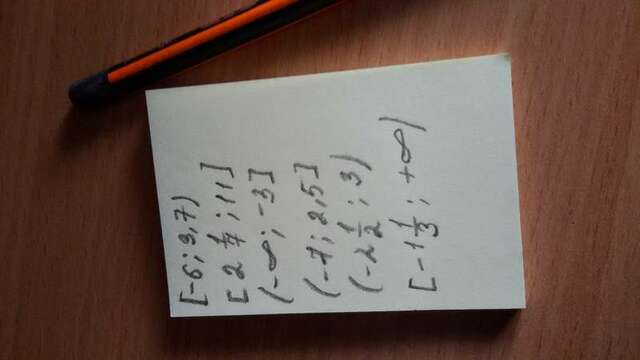 [-6; 3,7)
[2 1/7; 11]
(-∞; -3]
(-7; 2,5]
(-2 1/2; 3)
[-1 1/3; +∞)